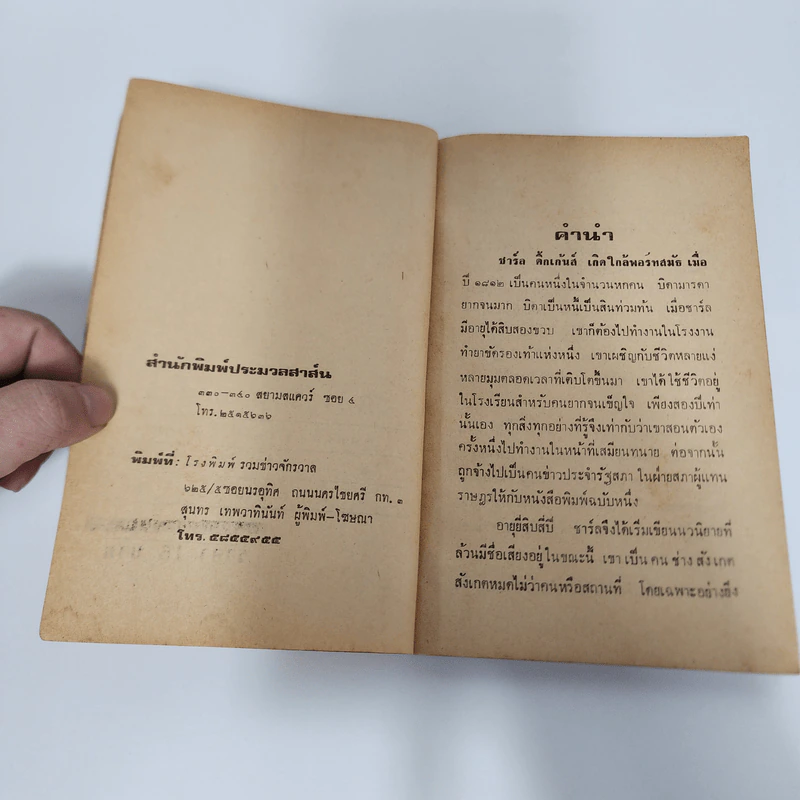 สำนักพิมพ์ประมวลสาส์น
๓๓๐-๓๔๐ สยามสแควร์ ซอย ๔
โทร.๒๕๑๕๖๓๖
พิมพ์ที่: โรงพิมพ์ รวมข่าวจักรวาล
๖๒๕/๕ซอยนรอุทิศ ถนนนครไชยศรี กท. ๓
สุนทร เทพวาทินันท์ ผู้พิมพ์-โฆษณา
โทร. ๕๘๕๕๙๕๕
คำนำ
ชาร์ล ดิ๊กเก้นส์ เกิดใกล้พอร์ทสมัธ เมื่อ
ปี ๑๘๑๒ เป็นคนหนึ่งในจำนวนหกคน บิดามารดา
ยากจนมาก บิดาเป็นหนี้เป็นสินท่วมท้น เมื่อชาร์ล
มีอายุได้สิบสองขวบ เขาก็ต้องไปทำงานในโรงงาน
ทำยาขัดรองเท้าแห่งหนึ่ง เขาเผชิญกับชีวิตหลายแง่
หลายมุมตลอดเวลาที่เติบโตขึ้นมา เขาได้ใช้ชีวิตอยู่
ในโรงเรียนสำหรับคนยากจนเข็ญใจ เพียงสองปีเท่า
นั้นเอง ทุกสิ่งทุกอย่างที่รู้จึงเท่ากับว่าเขาสอนตัวเอง
ครั้งหนึ่งไปทำงานในหน้าที่เสมียนทนาย ต่อจากนั้น
ถูกจ้างไปเป็นคนข่าวประจำรัฐสภา ในฝ่ายสภาผู้แทน
ราษฎรให้กับหนังสือพิมพ์ฉบับหนึ่ง
อายุยี่สิบสี่ปี ชาร์ลจึงได้เริ่มเขียนนวนิยายที่
ล้วนมีชื่อเสียงอยู่ในขณะนี้ เขาเป็นคนช่างสังเกต
สังเกตหมดไม่ว่าคนหรือสถานที่ โดยเฉพาะอย่างยิ่ง